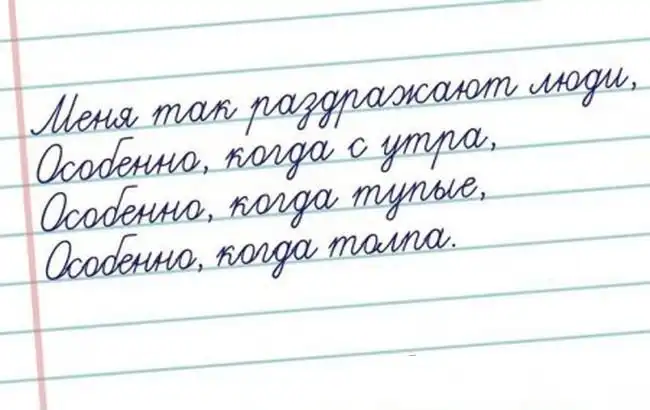 Меня так раздражают люди,
Особенно, когда с утра,
Особенно, когда тупые,
Особенно, когда толпа.